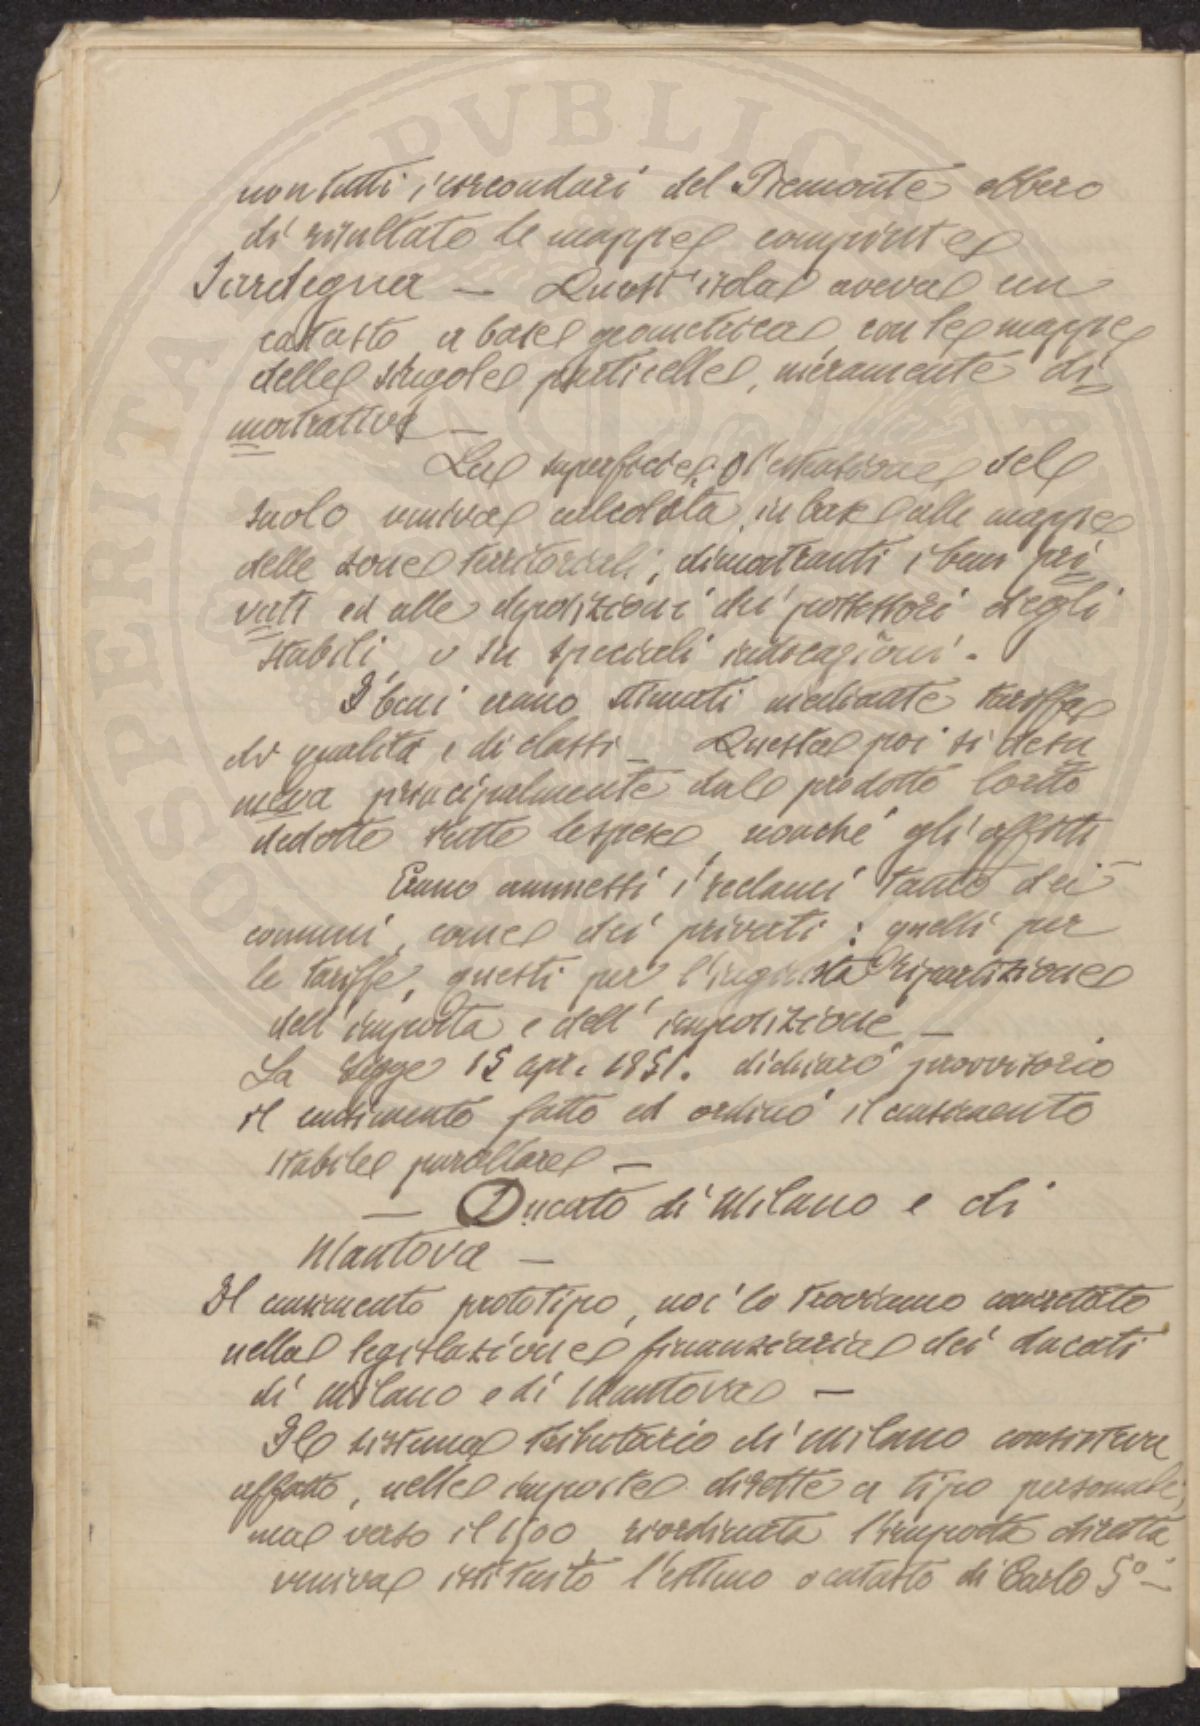 non tutti i circondari del Piemonte ebbero
di risultato le mappe compiute
Sardegna — Quest'isola aveva un
catasto a base geometrica, con le mappe
delle singole particelle, meramente di
mostrative —
La superficie, o l'estensione del
suolo veniva calcolata, in base alle mappe
delle zone territoriali, dimostranti i beni pri
vati ed alle deposizioni dei possessori degli
stabili, o su speciali indicazioni.
I beni erano stimati mediante tariffa
di qualità e di classi — Questa poi si desu
meva principalmente dal prodotto lordo
dedotte tutte le spese, nonché gli affitti
Erano ammessi i reclami tanto dei
comuni, come dei privati: quelli per
le tariffe, questi per l'ingiusta ripartizione
dell'imposta e dell'imposizione —
La legge 15 apr. 1851. dichiarò provvisorio
il censimento fatto ed ordinò il censimento
stabile parcellare —
— Ducato di Milano e di
Mantova —
Il censimento prototipo, noi lo troviamo concretato
nella legislazione finanziaria dei ducati
di Milano e di Mantova —
Il sistema tributario di Milano consisteva
affatto, nelle imposte dirette a tipo personale,
ma verso il 1500, riordinata l'imposta diretta
veniva istituito l'estimo o catasto di Carlo 5° —
PROSPERITA PVBLICA